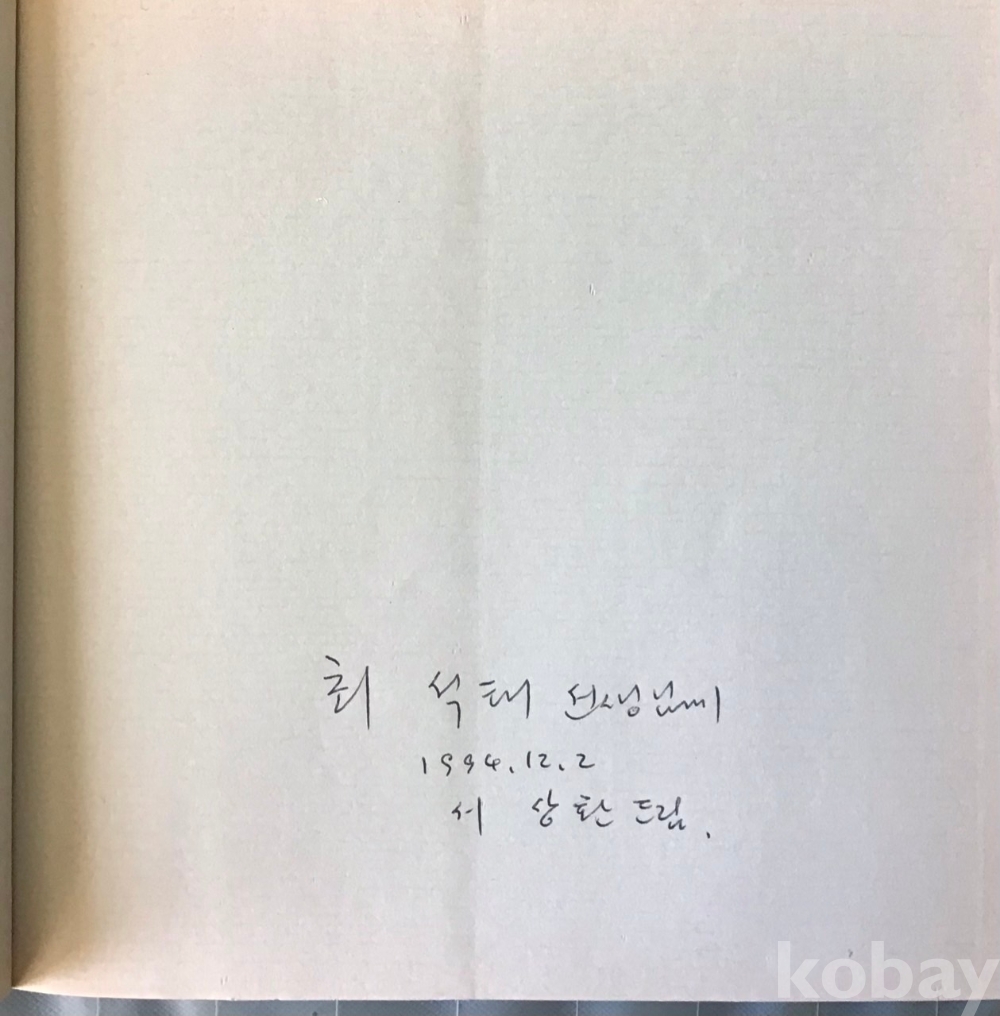 최 석태 선생님께
1994.12.2
서 상환 드림.
kobay